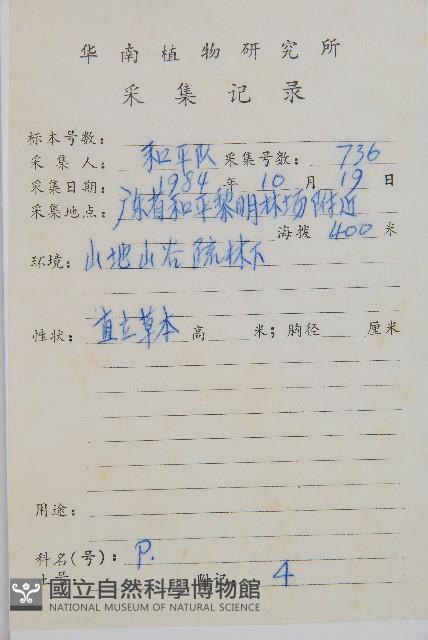 华南植物研究所
采集记录
标本号数：
采集人：和平队 采集号数：736
采集日期：1984年10月19日
采集地点：广东省和平黎明林场附近
海拨 400 米
环境：山地山谷疏林下
性状：直立草本 高 米；胸径 厘米
用途：
科名(号)：P.
附记： 4
國立自然科學博物館
NATIONAL MUSEUM OF NATURAL SCIENCE